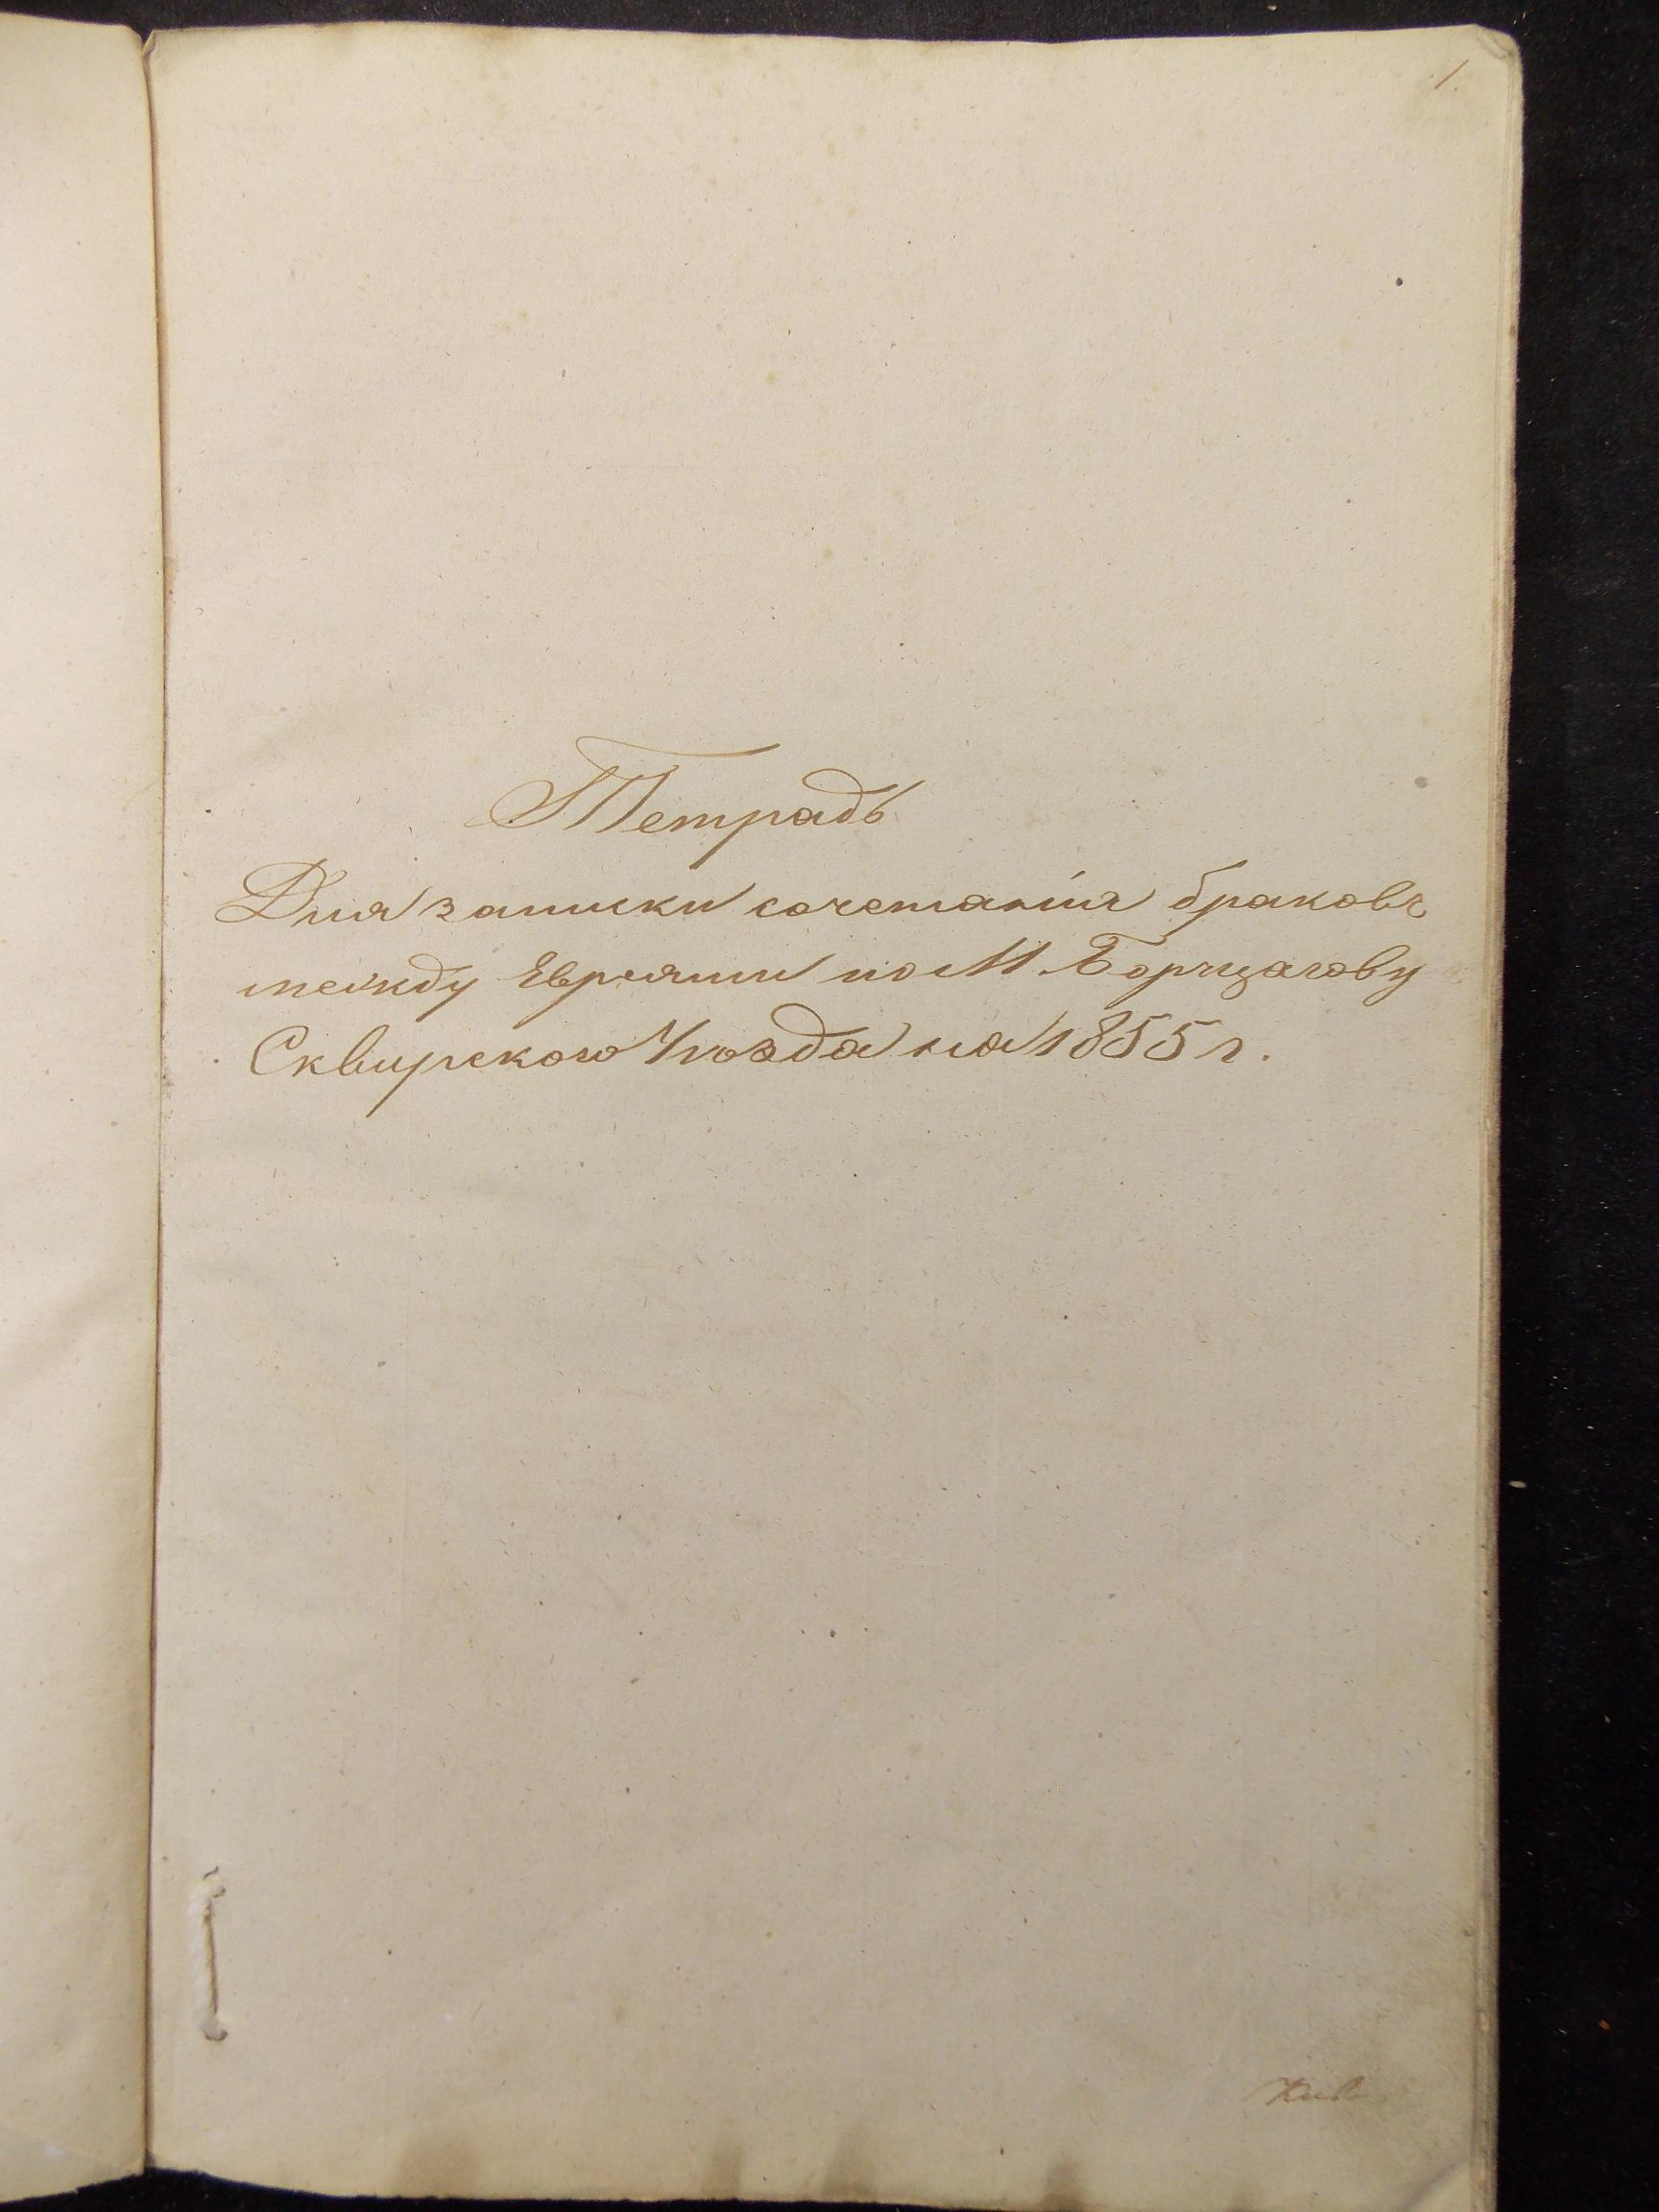 1.
Тетрадь
Для записки сочетанія браковъ
между Евреями по М. Борщагову
Сквирского Уѣзда на 1855 г.
Кив